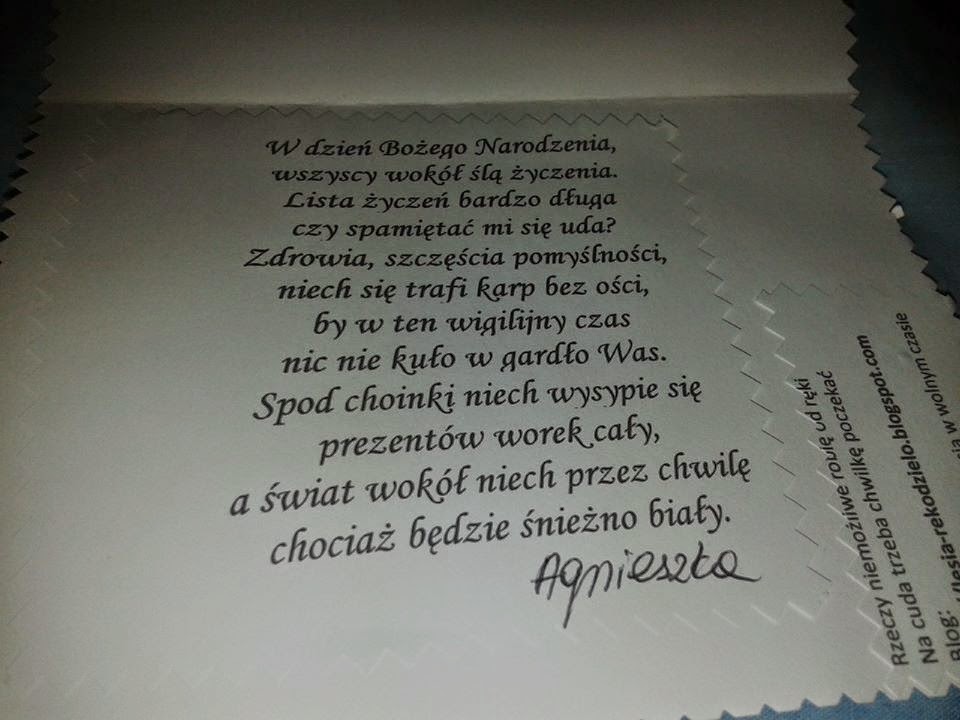 W dzień Bożego Narodzenia,
wszyscy wokół ślą życzenia.
Lista życzeń bardzo długa
czy spamiętać mi się uda?
Zdrowia, szczęścia pomyślności,
niech się trafi karp bez ości,
by w ten wigilijny czas
nic nie kuło w gardło Was.
Spod choinki niech wysypie się
prezentów worek cały,
a świat wokół niech przez chwilę
chociaż będzie śnieżno biały.
Agnieszka
Rzeczy niemożliwe robię od ręki
Na cuda trzeba chwilkę poczekać
Blog: -rekodzielo.blogspot.com
w wolnym czasie